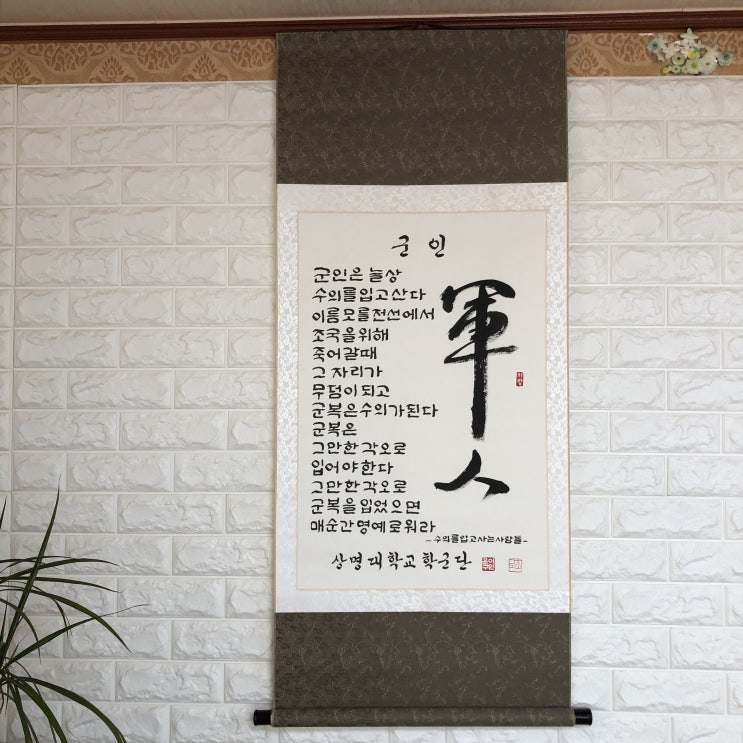 군인
군인은 늘상
수의를입고산다
이름모를전선에서
조국을위해
죽어갈때
그 자리가
무덤이되고
군복은수의가된다
군복은
그만한각오로
입어야한다
그만한각오로
군복을입었으면
매순간명예로워라
軍人
-수의를입고사는사람들-
상명대학교학군단